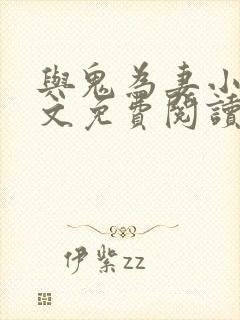 與鬼為妻小
文免費閱讀
伊紫zz